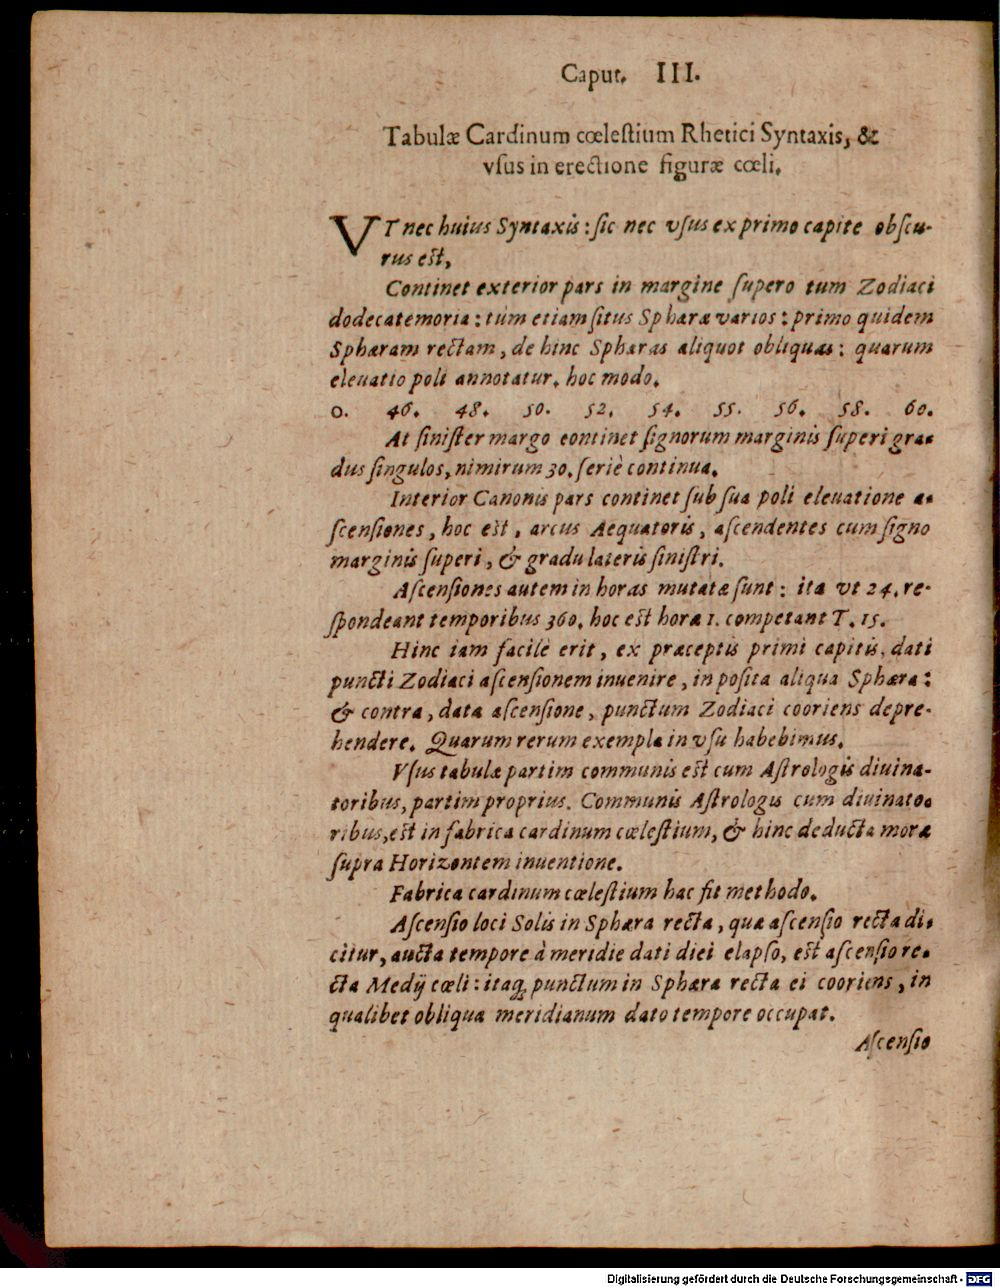 Caput. III.
Tabulæ Cardinum cœleſtium Rhetici Syntaxis, &
vſus in erectione figuræ cœli.
VT nec huius Syntaxis: ſic nec vſus ex primo capite obſcu-
rus est,
Continet exterior pars in margine ſupero tum Zodiaci
dodecatemoria: tum etiam ſitus Sphæræ varios: primo quidem
Sphæram rectam, de hinc Sphæras aliquot obliquas: quarum
eleuatio poli annotatur, hoc modo.
0. 46. 48. 50. 52. 54. 55. 56. 58. 60.
At ſiniſter margo continet ſignorum marginis ſuperi gra-
dus ſingulos, nimirum 30. ſeriè continua.
Interior Canonis pars continet ſub ſua poli eleuatione a-
ſcenſiones, hoc est, arcus Aequatoris, aſcendentes cum ſigno
marginis ſuperi, & gradu lateris ſiniſtri.
Aſcenſiones autem in horas mutatæ ſunt: ita vt 24. re-
ſpondeant temporibus 360. hoc est horæ 1. competant T. 15.
Hinc iam facilè erit, ex præceptis primi capitis, dati
puncti Zodiaci aſcenſionem inuenire, in poſita aliqua Sphæra:
& contra, data aſcenſione, punctum Zodiaci cooriens depre-
hendere. Quarum rerum exempla in vſu habebimus.
Vſus tabulæ partim communis est cum Aſtrologis diuina-
toribus, partim proprius. Communis Aſtrologis cum diuinato-
ribus, est in fabrica cardinum cœleſtium, & hinc deducta moræ
ſupra Horizontem inuentione.
Fabrica cardinum cœleſtium hac fit methodo.
Aſcenſio loci Solis in Sphæra recta, quæ aſcenſio recta di-
citur, aucta tempore à meridie dati diei elapſo, est aſcenſio re-
cta Medij cœli: itaq; punctum in Sphæra recta ei cooriens, in
qualibet obliqua meridianum dato tempore occupat.
Aſcenſio
Digitalisierung gefördert durch die Deutsche Forschungsgemeinschaft - DFG